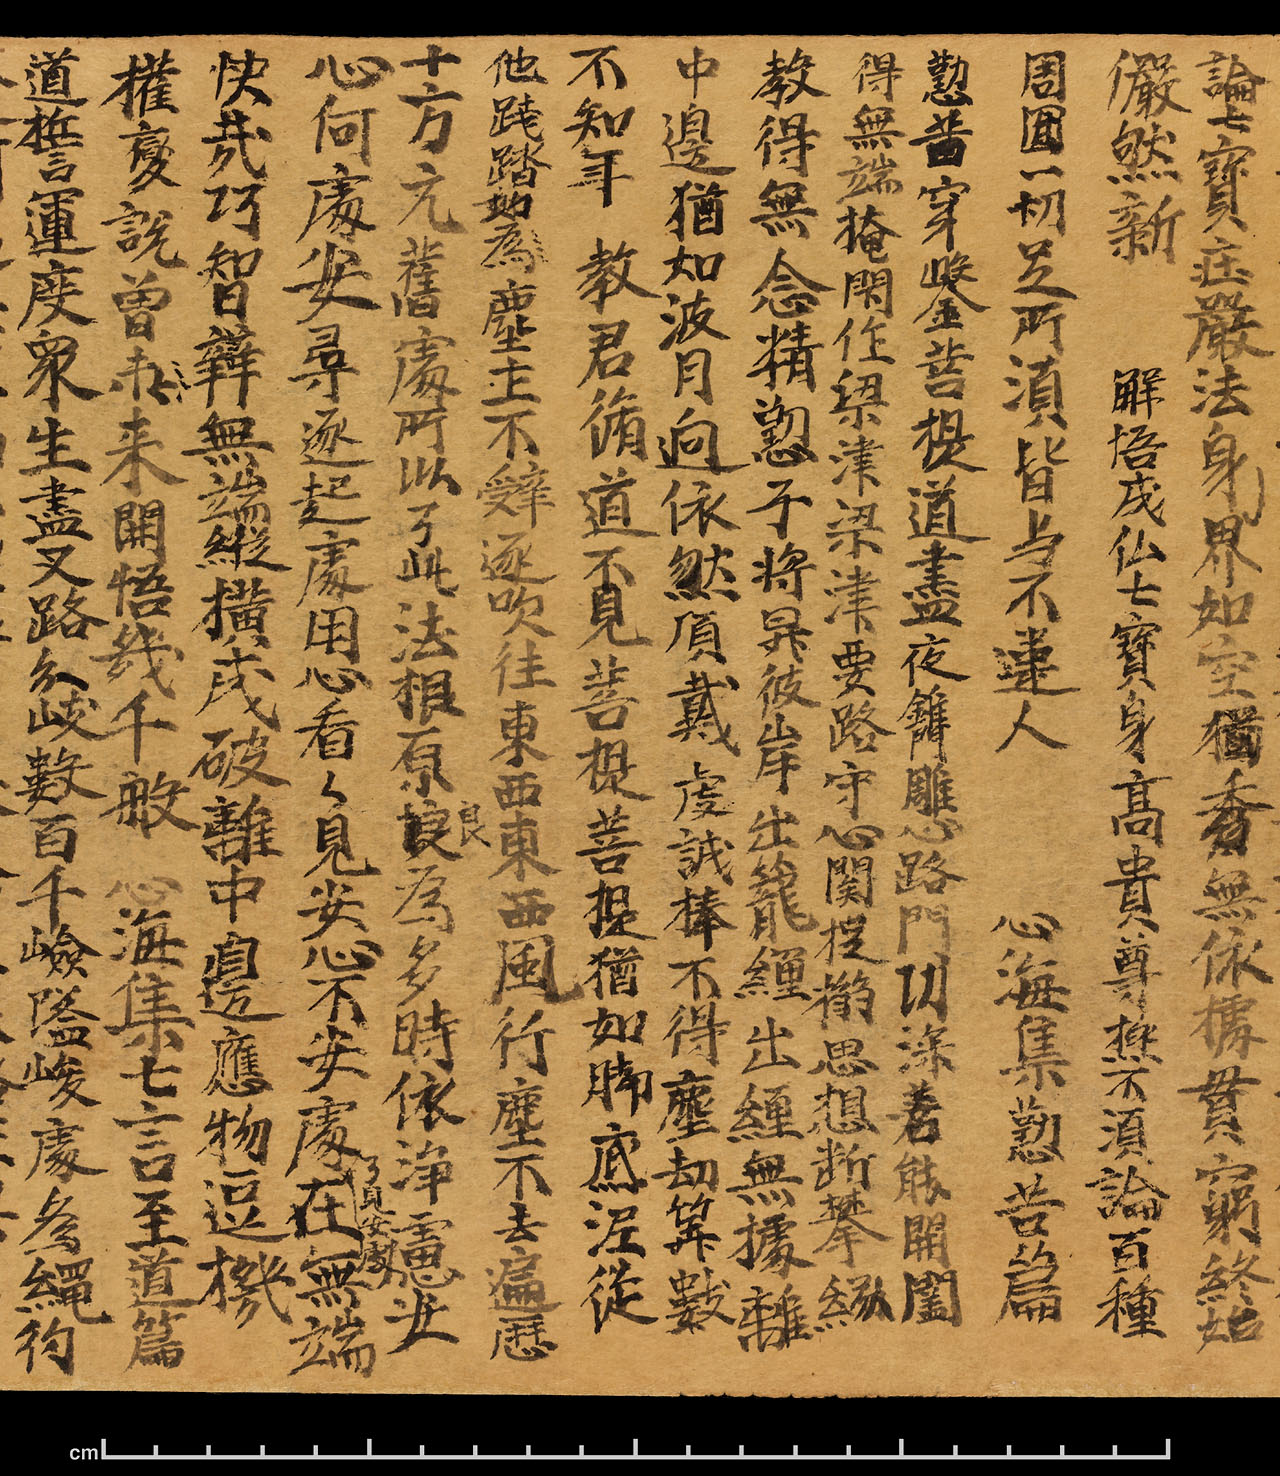 論七寶庄嚴法身界如空猶香無依據貫窮終始
儼然新 解悟成仏七寶身高貴尊無不須論百種
周圓一切足所須皆与不違人 心海集懃苦篇
懃苦穿鑿菩提道晝夜鑽雕心路門功深若能開闔
得無端掩閇作梁津梁津要路守心関挃撿思想断攀緣
教得無念精懃子將昇彼岸出籠纏出纏無據離
中邊猶如波月向依然頂戴虔誠捧不得塵劫筭數
不知年 教君脩道不見菩提菩提猶如脚底泥從
他踐踏為塵土不辤逐吹往東西東西風行塵不去遍歷
十方元舊處所以了此法根原良為多時依淨慮安
心何處安尋逐起處用心看々見安心不安處了見安處在無端
快哉巧智辯無端縱橫成破離中邊應物逗機
權變說曾未來開悟幾千般 心海集七言至道篇
道誓運度衆生盡叉路多岐數百千嶮隘峻處為繩約
cm